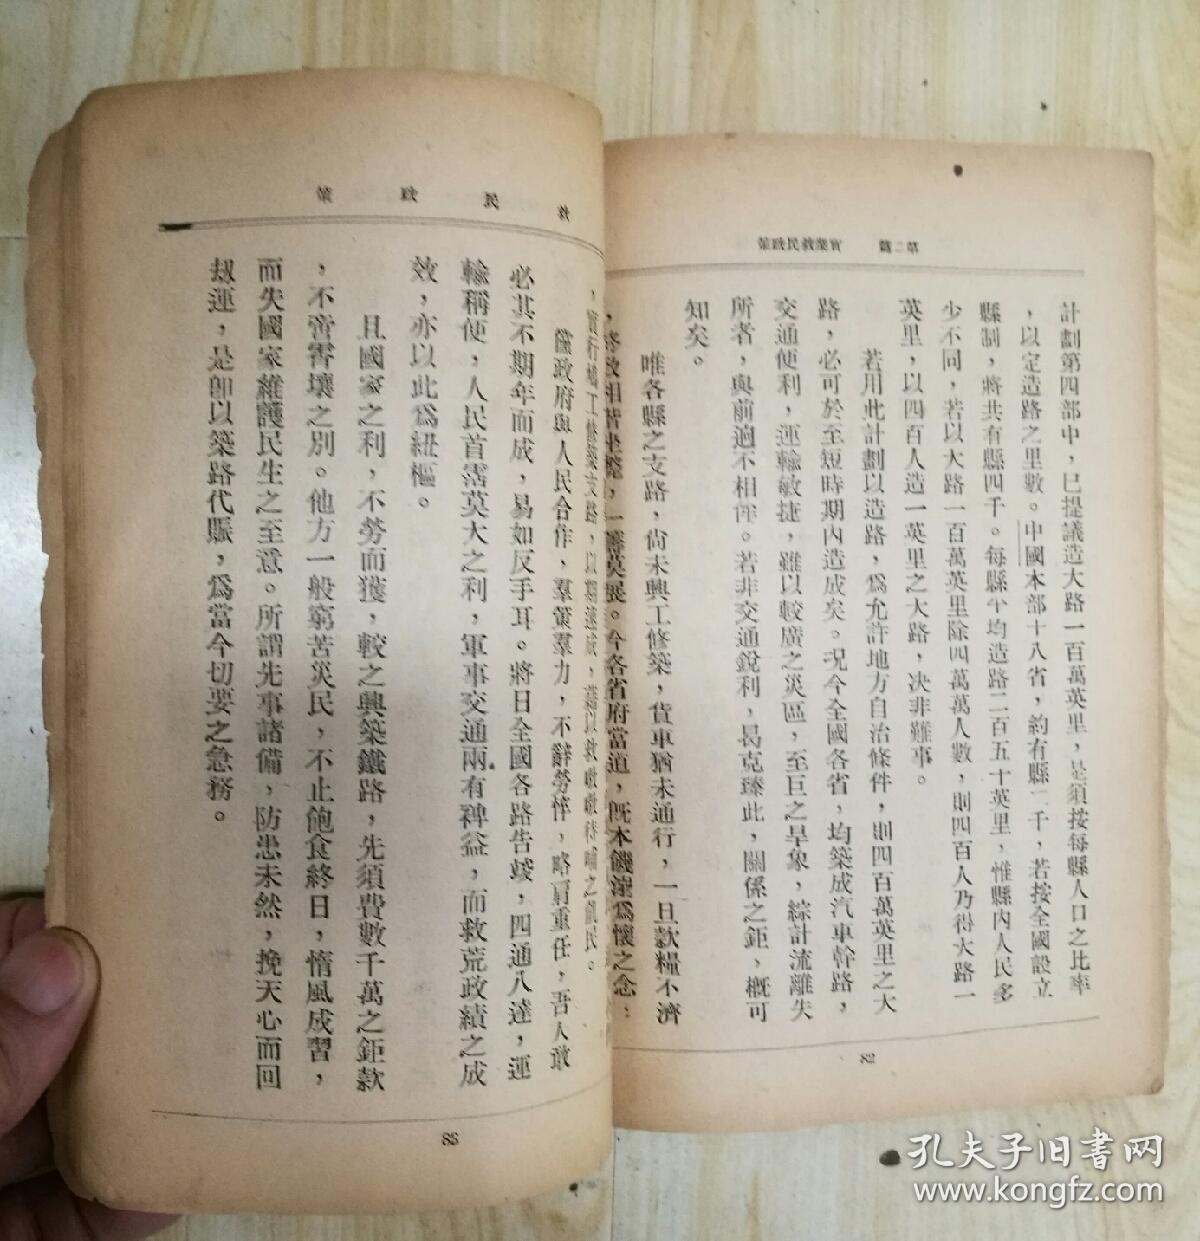 第二篇　實業救民政策
計劃第四部中，已提議造大路一百萬英里，是須按每縣人口之比率
，以定造路之里數。中國本部十八省，約有縣二千，若按全國設立
縣制，將共有縣四千。每縣平均造路二百五十英里，惟縣內人民多
少不同，若以大路一百萬英里除四萬萬人數，則四百人乃得大路一
英里，以四百人造一英里之大路，决非難事。
若用此計劃以造路，爲允許地方自治條件，則四百萬英里之大
路，必可於至短時期內造成矣。況今全國各省，均築成汽車幹路，
交通便利，運輸敏捷，雖以較廣之災區，至巨之旱象，綜計流離失
所者，與前適不相侔。若非交通銳利，曷克臻此，關係之鉅，槪可
知矣。
唯各縣之支路，尙未興工修築，貨車猶未通行，一旦款糧不濟
，一籌莫展。今各省府當道，旣本饑溺爲懷之念：
82
救民政策
，實行，以期速成，藉以救嗷嗷待哺之飢民。
儻政府與人民合作，羣策羣力，不辭勞悴，略肩重任，吾人敢
必其不期年而成，易如反手耳。將日全國各路告竣，四通八達，運
輸稱便，人民首霑莫大之利，軍事交通兩有裨益，而救荒政績之成
效，亦以此爲紐樞。
且國家之利，不勞而獲，較之興築鐵路，先須費數千萬之鉅款
，不啻霄壤之別。他方一般窮苦災民，不止飽食終日，惰風成習，
而失國家維護民生之至意。所謂先事諸備，防患未然，挽天心而回
刼運，是卽以築路代賑，爲當今切要之急務。
83
孔夫子旧书网
www.kongfz.com